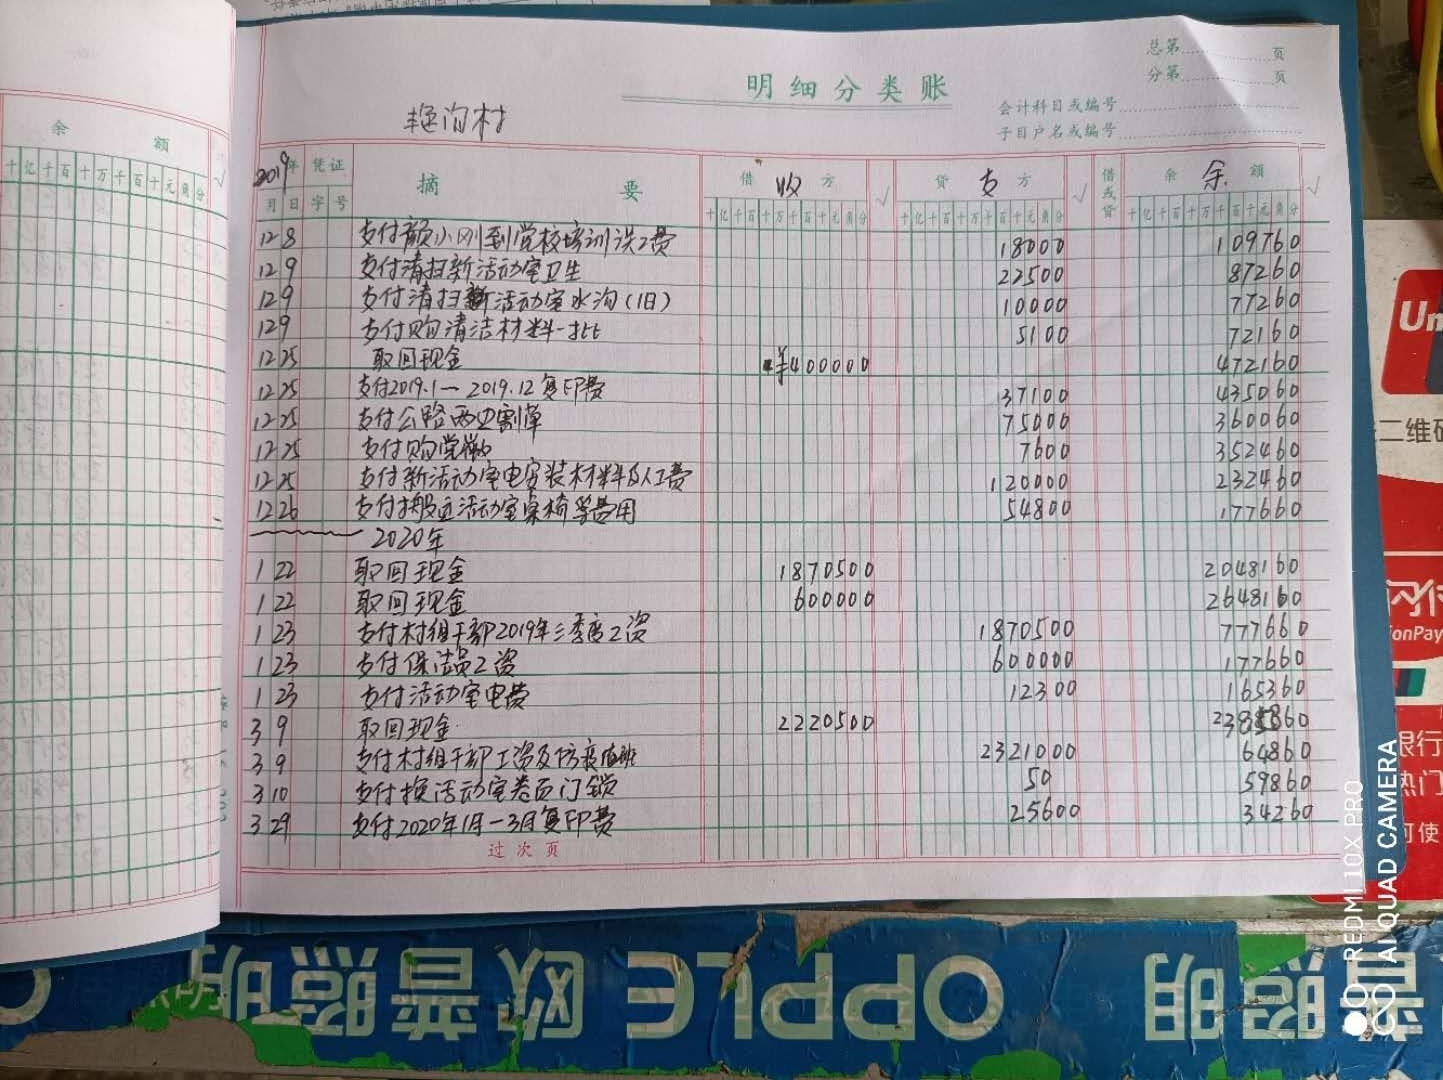 总第 页
分第 页
明细分类账
会计科目或编号
子目户名或编号
沟村
余 额
十亿千百十万千百十元角分
2019年 凭证 摘 要 借 收 方 √ 贷 支 方 √ 借或贷 余 余 额 √
月 日 字 号 十亿千百十万千百十元角分 十亿千百十万千百十元角分 十亿千百十万千百十元角分
12 8 支付颜小刚到党校培训误工费 18000 109760
12 9 支付清扫新活动室卫生 22500 87260
12 9 支付清扫新活动室水沟(旧) 10000 77260
12 9 支付购清洁材料一批 5100 72160
12 25 取回现金 ¥400000 472160
12 25 支付2019.1一2019.12复印费 37100 435060
12 25 支付公路两边割草 75000 360060
12 25 支付购党徽 7600 352460
12 25 支付新活动室电安装材料及人工费 120000 232460
12 26 支付搬运活动室桌椅等费用 54800 177660
2020年
1 22 取回现金 1870500 2048160
1 22 取回现金 600000 2648160
1 23 支付村组干部2019年三季度工资 1870500 777660
1 23 支付保洁员工资 600000 177660
1 23 支付活动室电费 12300 165360
3 9 取回现金 2220500 2385860
3 9 支付村组干部工资及防疫值班 2321000 64860
3 10 支付换活动室卷页门锁 50 59860
3 29 支付2020年1月一3月复印费 25600 34260
过次页
二维码
银行
OPPLE 欧普照明
普照明
REDMI 10X PRO
AI QUAD CAMERA